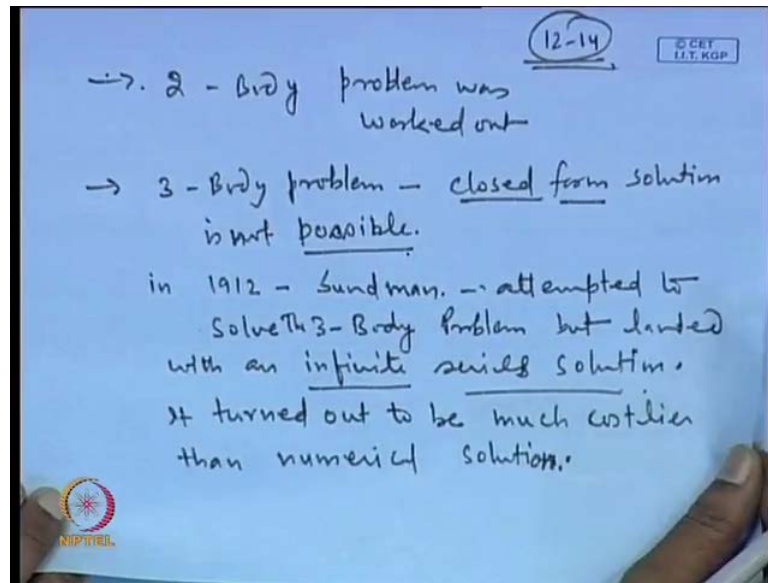 12-14
© CET
I.I.T. KGP
→. 2 - Body problem was
worked out
→ 3 - Body problem - closed form solution
is not possible.
in 1912 - Sundman. - attempted to
Solve Th 3-Body Problem but landed
with an infinite series solution.
It turned out to be much costlier
than numerical solution.
NPTEL